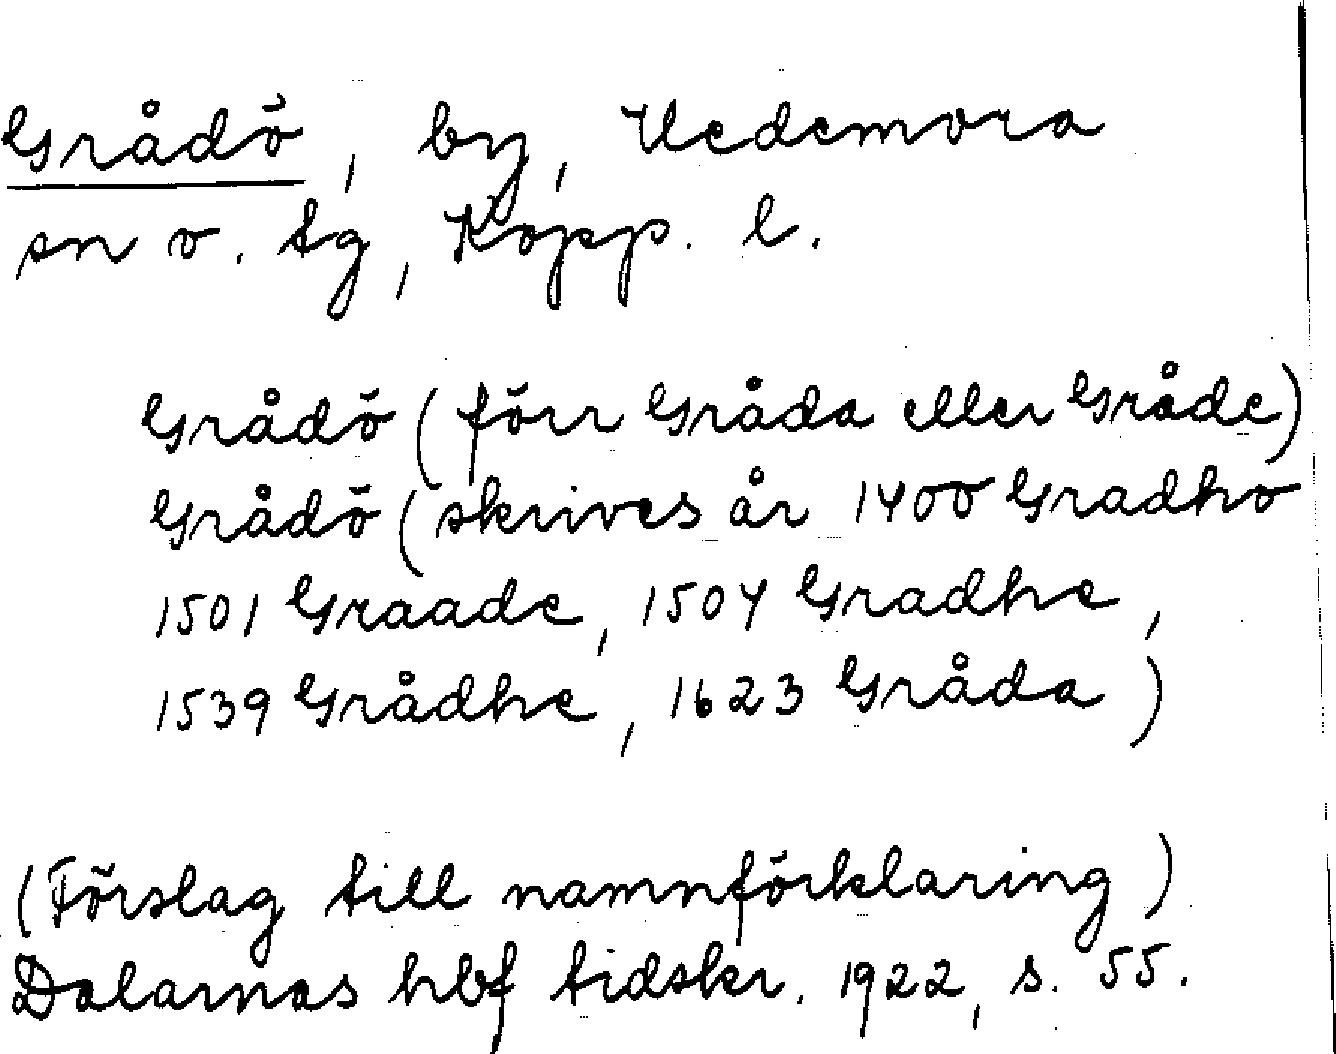 Grådö, by, Hedemora
sn o. tg, Kopp. l.
Grådö (förr Gråda eller Gråde)
Grådö (skrives år 1400 Gradho
1501 Graade, 1504 Gradhe,
1539 Grådhe, 1623 Gråda)
(Förslag till namnförklaring)
Dalarnas hbf tidskr. 1922, s. 55.